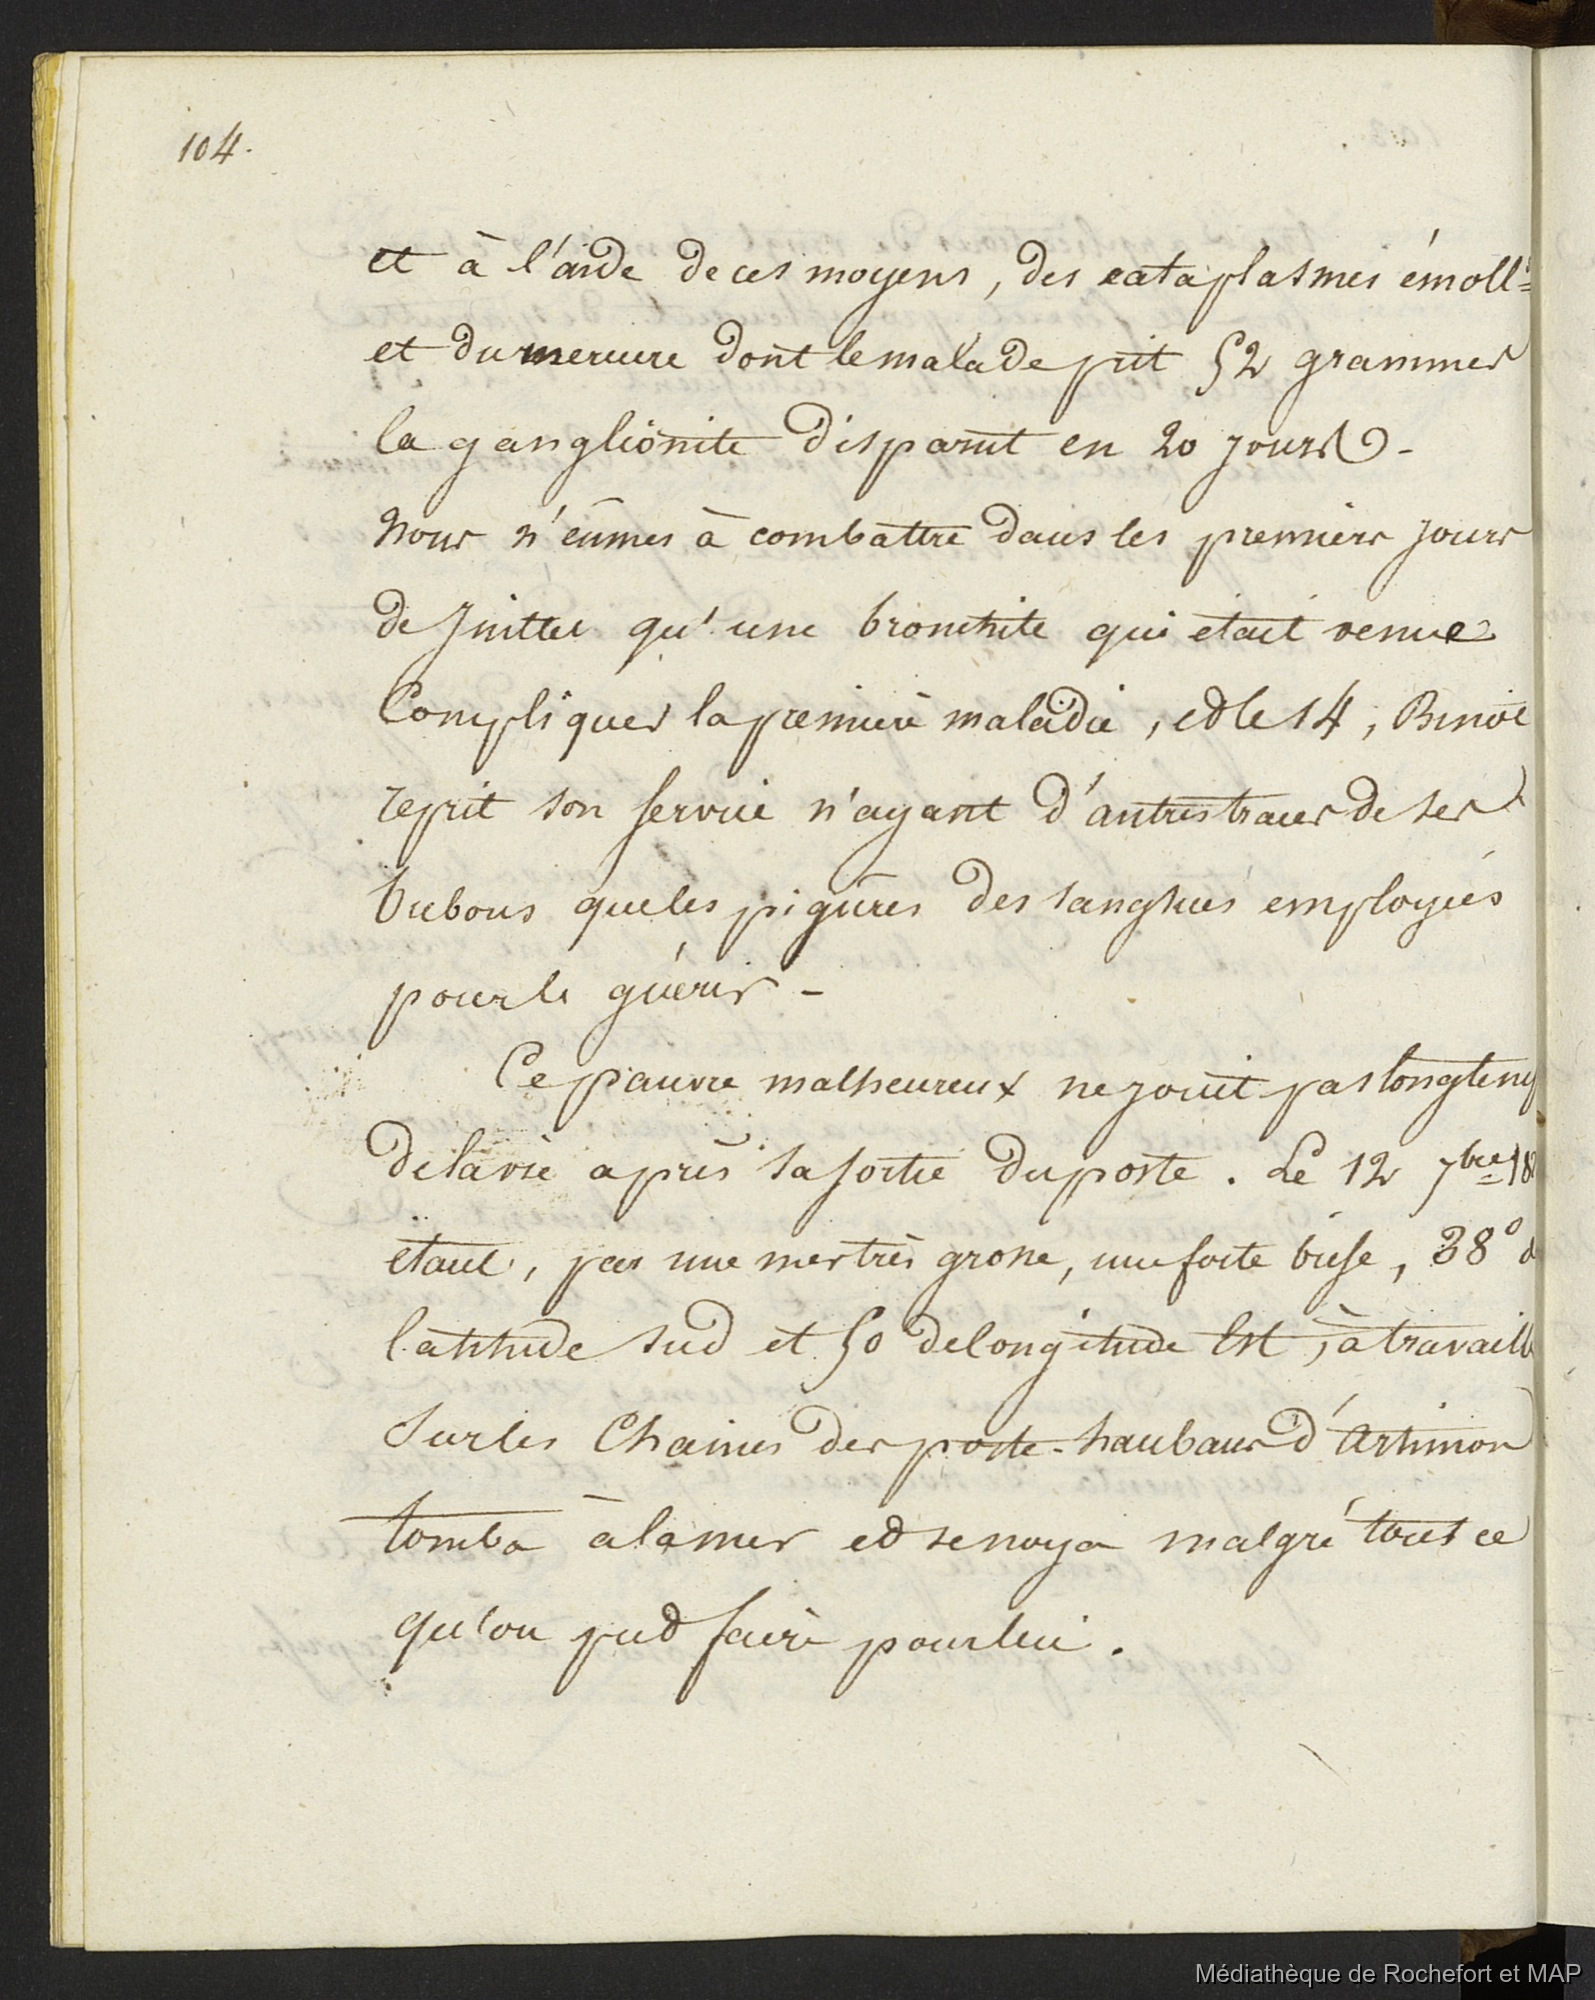 104.
et à l'aide de ces moyens, des cataplasmes émoll.ˢ
et du mercure dont le malade prit 52 grammes
la ganglionite disparut en 20 jours -
Nous n'eûmes à combattre dans les premiers jours
de Juillet qu'une bronchite qui était venue
Compliquer la première maladie, et le 14, Benoit
reprit son service n'ayant d'autres traces de ses
bubons que les piqûres des sangsues employées
pour le guérir -
Ce pauvre malheureux ne jouit pas longtemp
de la vie après sa sortie du poste. Le 12 7bre 18
étant, par une mer très grosse, une forte brise, 38° d
latitude Sud et 50 de longitude Est, à travaill
Sur les Chaines des porte-haubans d'Artimon
tomba à la mer et se noya malgré tout ce
qu'on put faire pour lui.
Médiathèque de Rochefort et MAP